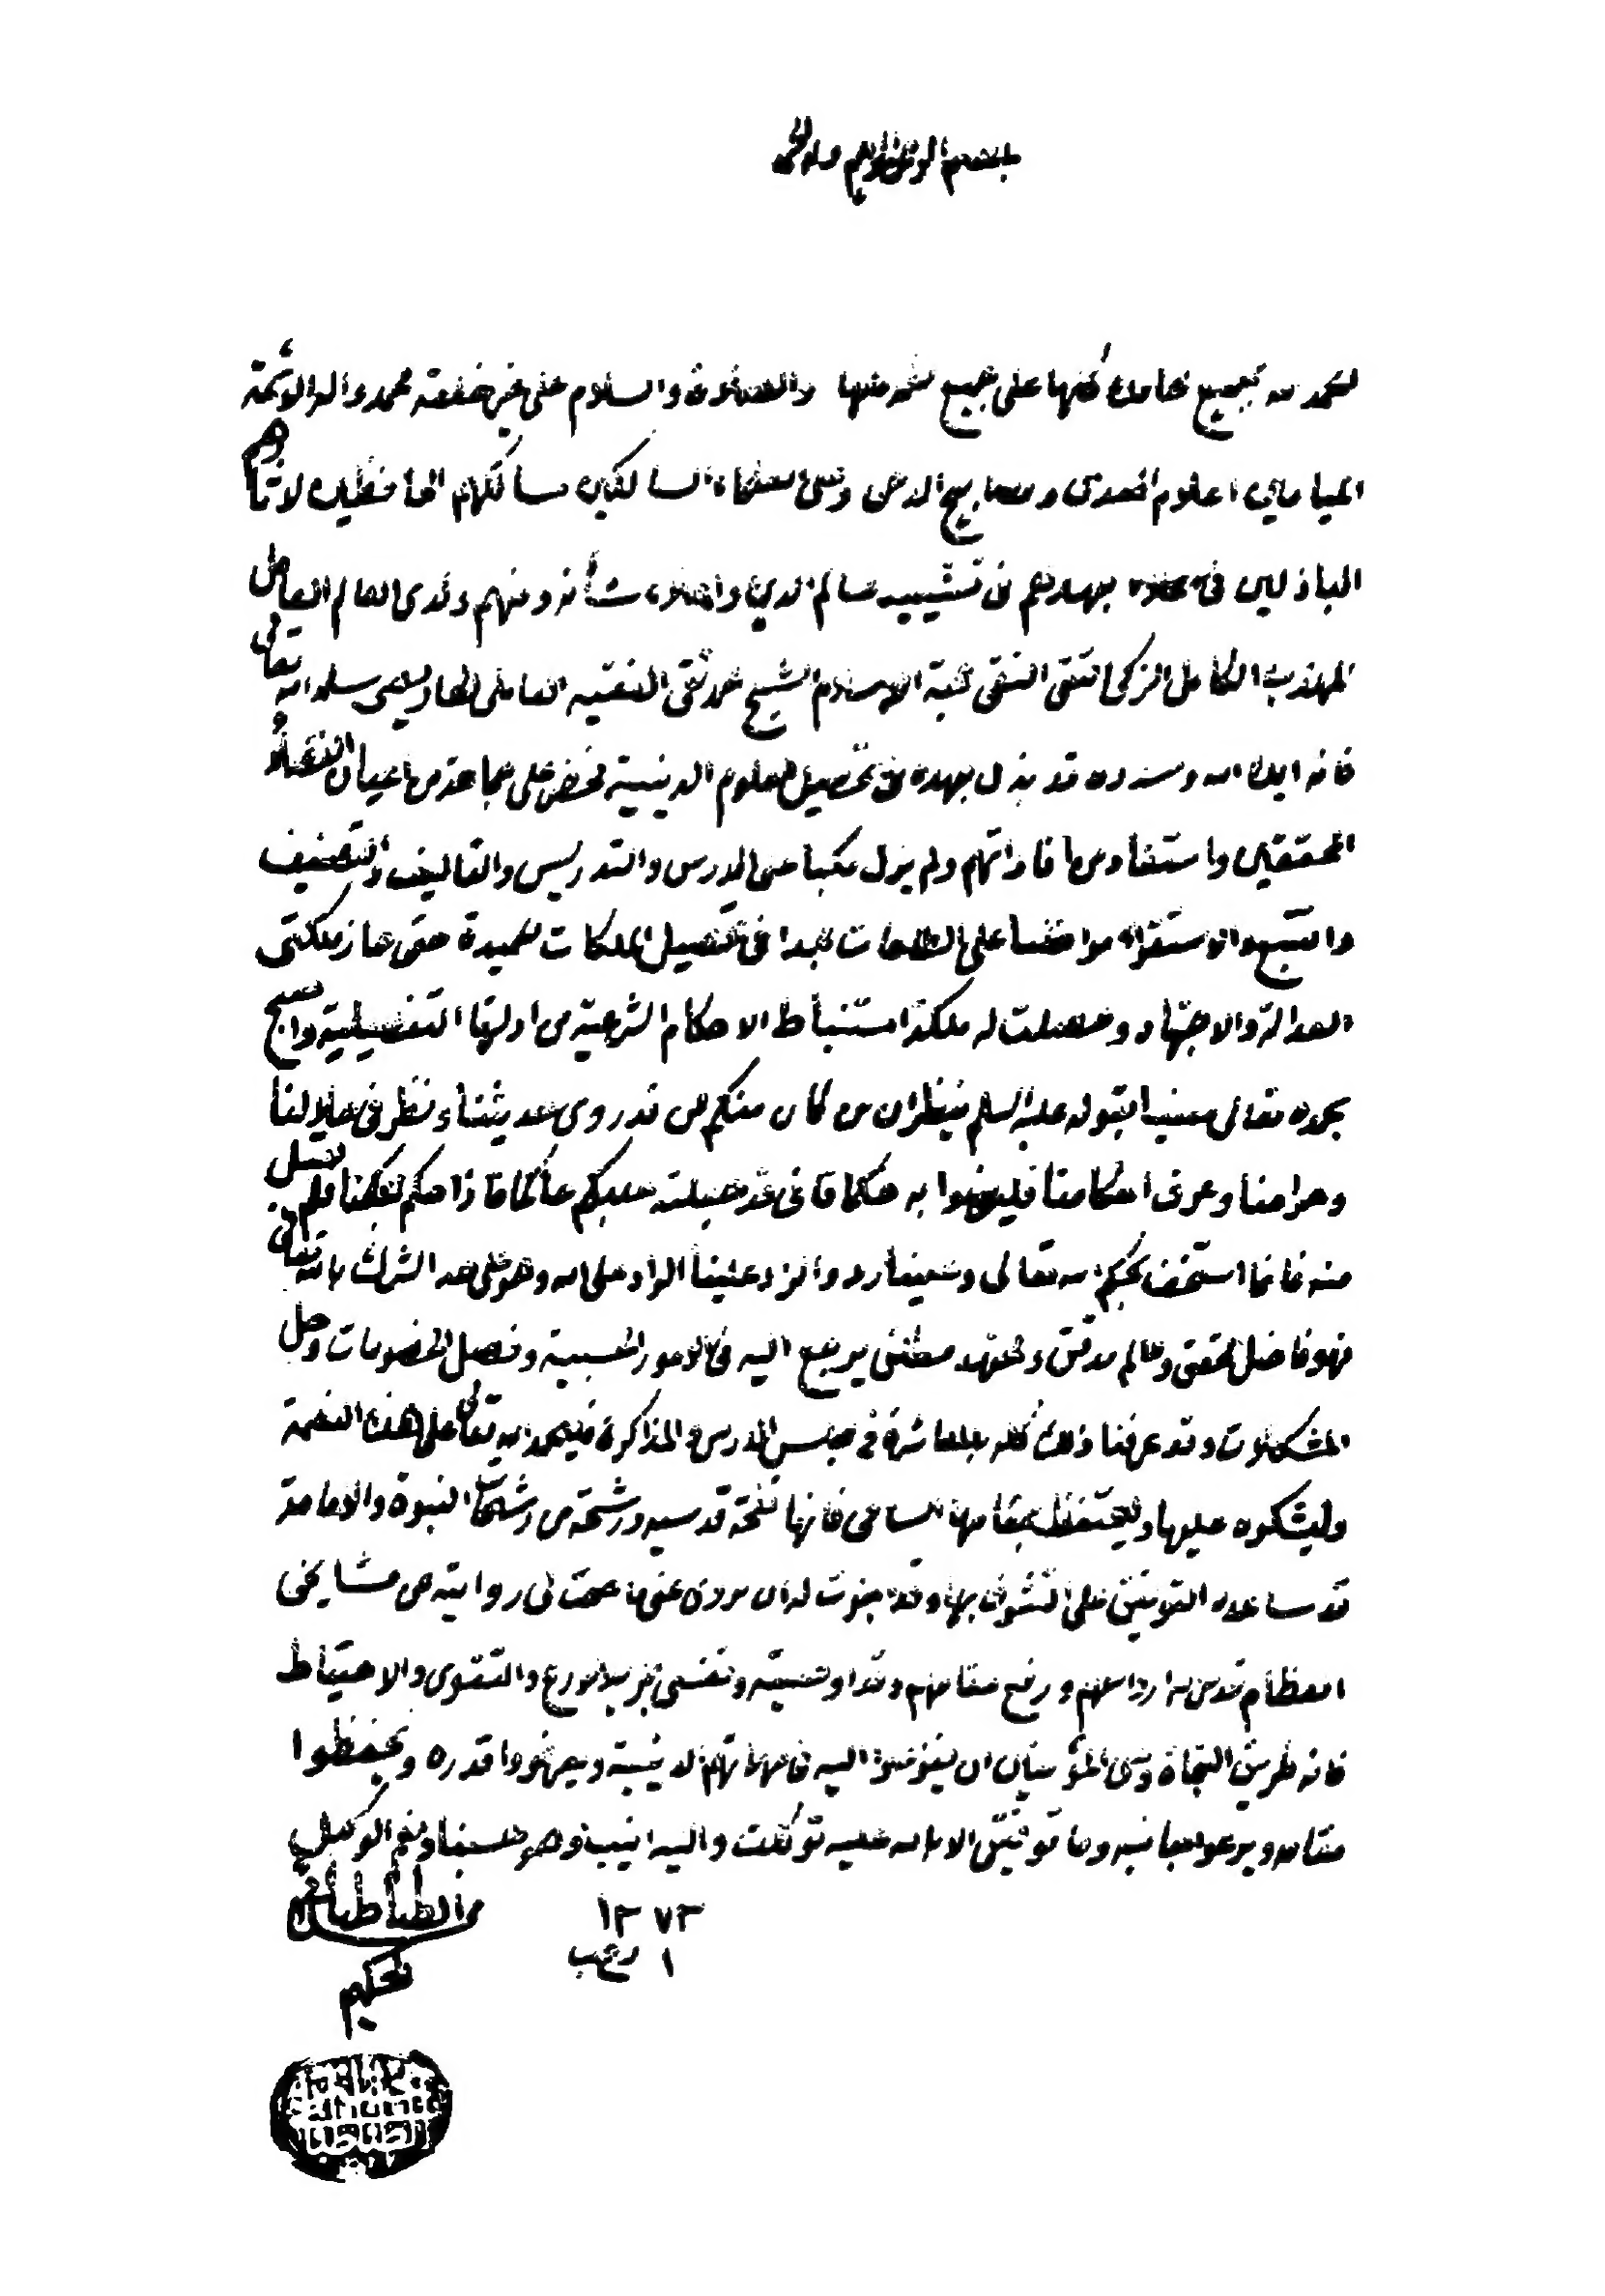 بسم الله الرحمن الرحيم وله الحمد
الحمد لله بجميع محامده كلها على جميع نعمه كلها والصلاة والسلام على خير خلقه محمد وآله الائمة
الميامين اعلام الهدى ومصابيح الدجى وعلى العلماء السالكين مسالكهم الحافظين لاثارهم
الباذلين جهدهم في تشييد معالم الدين واعلاء شأنه ومنهم ولدي العالم الفاضل
المهذب الكامل الزكي التقي النقي ثقة الاسلام الشيخ محمد تقي الفقيه العاملي الحاريصي سلمه الله تعالى
فانه ايده الله وسدده قد بذل جهده في تحصيل العلوم الدينية فحضر على جماعة من اعيان الفضلاء
المحققين واستفاد من افاداتهم ولم يزل مكبا على الدرس والتدريس والتأليف والتصنيف
والتتبع والاستقراء مواظبا على الطاعات مجدا في تحصيل الملكات الحميدة حتى حاز ملكتي
العدالة والاجتهاد وحصلت له ملكة استنباط الاحكام الشرعية من ادلتها التفصيلية واصبح
بحمده تعالى معنيا بقوله عليه السلم ينظران من كان منكم ممن قد روى حديثنا ونظر في حلالنا
وحرامنا وعرف احكامنا فليرضوا به حكما فاني قد جعلته عليكم حاكما فاذا حكم بحكمنا فلم يقبل
منه فانما استخف بحكم الله تعالى وعلينا رد والراد علينا الراد على الله وهو على حد الشرك بالله تعالى
فهو فاضل محقق وعالم مدقق ومجتهد مطلق يرجع اليه في الامور الحسبية وفصل الخصومات وحل
المشكلات وقد عرفنا ذلك كله بالمعاشرة في مجلس الدرس والمذاكرة فليحمد الله تعالى على هذه النعمة
وليشكره عليها وليحتفظ بمقامها السامي فانها نفحة قدسيه ورشحة من رشحات النبوة والامامة
قد ساعده التوفيق على التشرف بها وقد اجزت له ان يروي عني ما صحت لي روايته عن مشايخي
العظام قدس الله ارواحهم ورفع مقامهم وقد اوصيته ونفسي بمزيد الورع والتقوى والاحتياط
فانه طريق النجاة وعلى المؤمنين ان يفوضوا اليه مهماتهم الدينية ويعرفوا قدره ويحفظوا
مقامه ويرعوا جانبه وما توفيقي الا بالله عليه توكلت واليه انيب وهو حسبنا ونعم الوكيل
محسن الطباطبائي
الحكيم
١٣٧٣
١ رجب